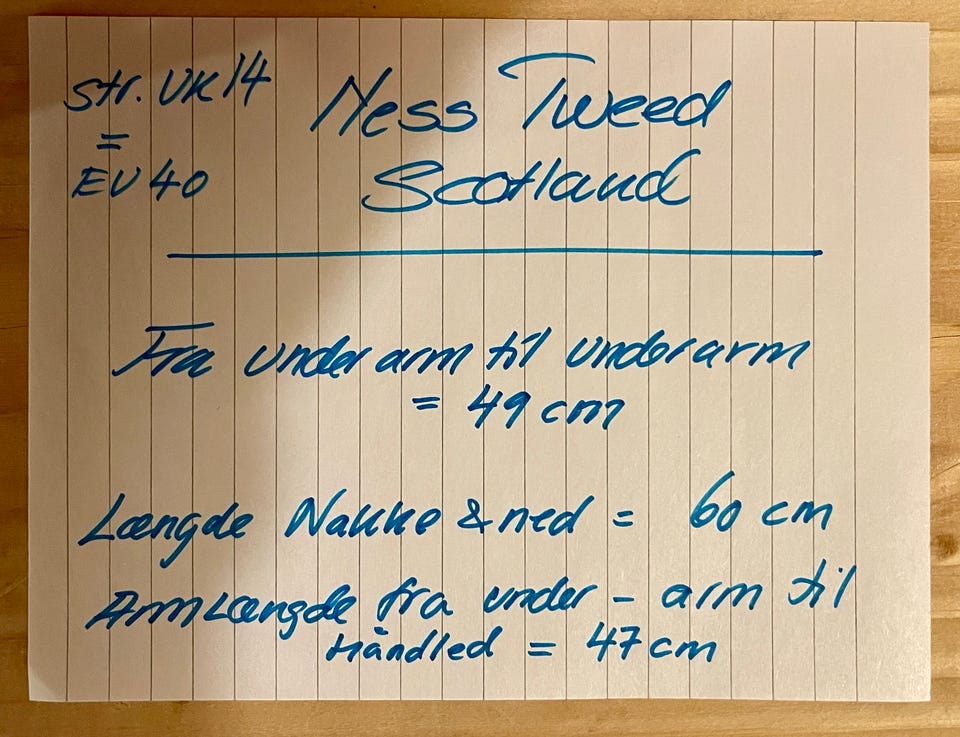 Str. UK14
=
EU 40
Ness Tweed
Scotland
Fra under arm til underarm
= 49 cm
Længde Nakke & ned = 60 cm
Armlængde fra under - arm til
Håndled = 47 cm